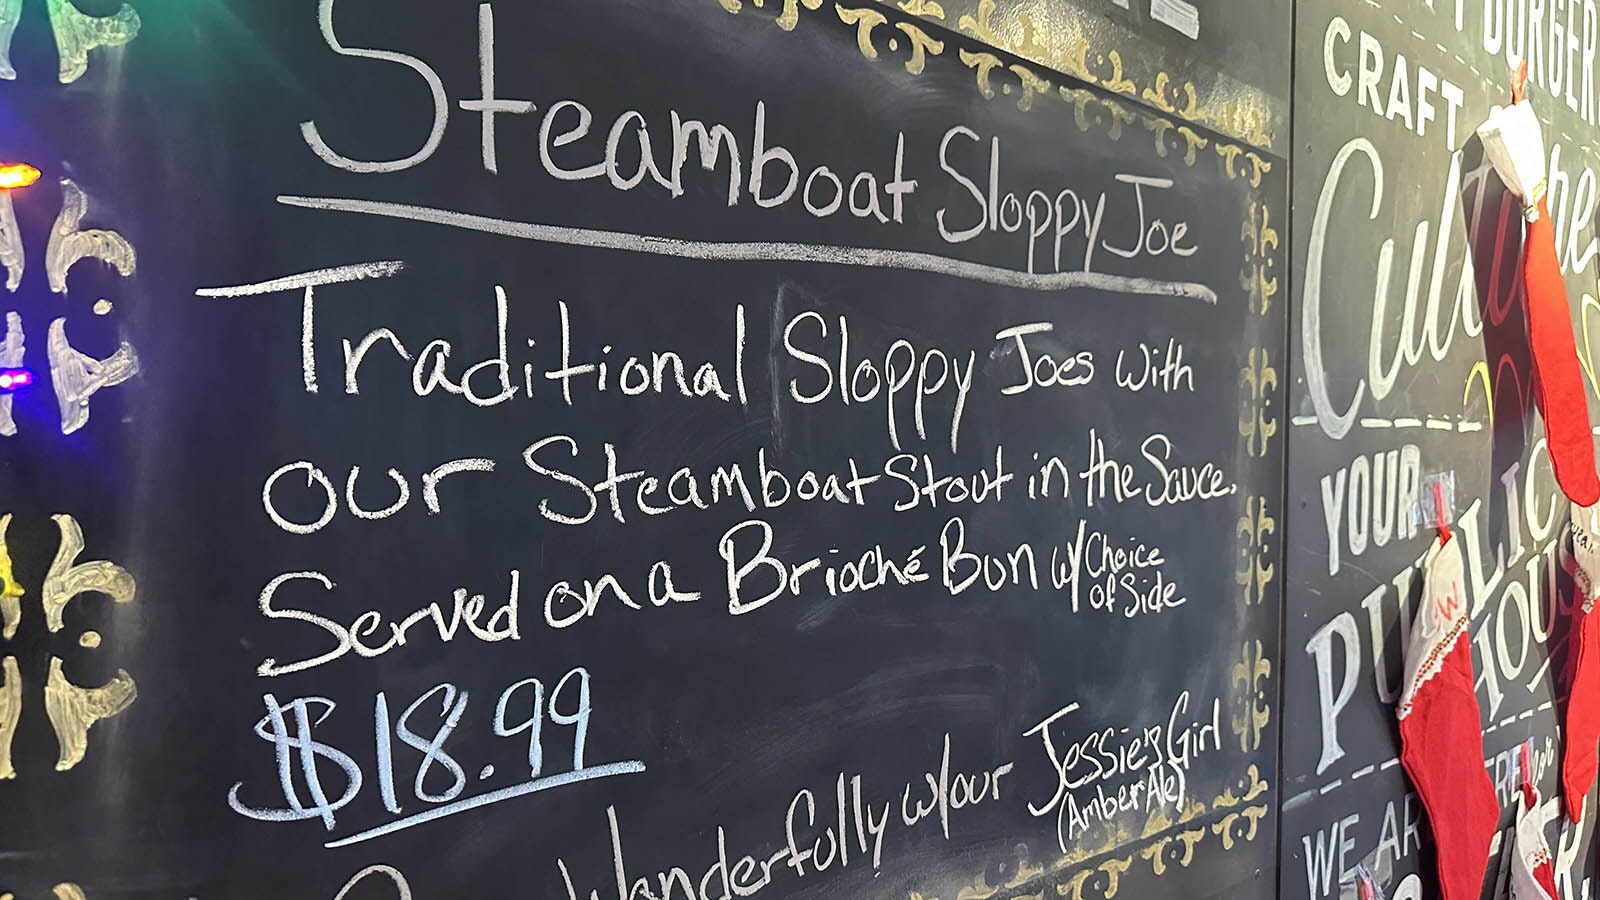 Steamboat Sloppy Joe
Traditional Sloppy Joes with
our Steamboat Stout in the Sauce.
Served on a Brioché Bun w/ Choice
of Side
$18.99
Wonderfully w/our Jessie's Girl
(Amber Ale)
BURGER
CRAFT
YOUR
WE